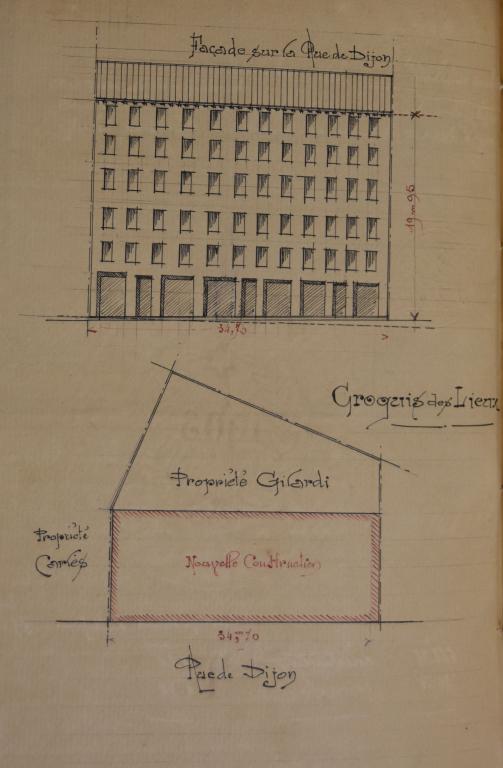 Façade sur la Rue de Dijon
19m95
34,70
Croquis des Lieux
Propriété Gilardi
Propriété
Carlès
Nouvelle Construction
34,m70
Rue de Dijon